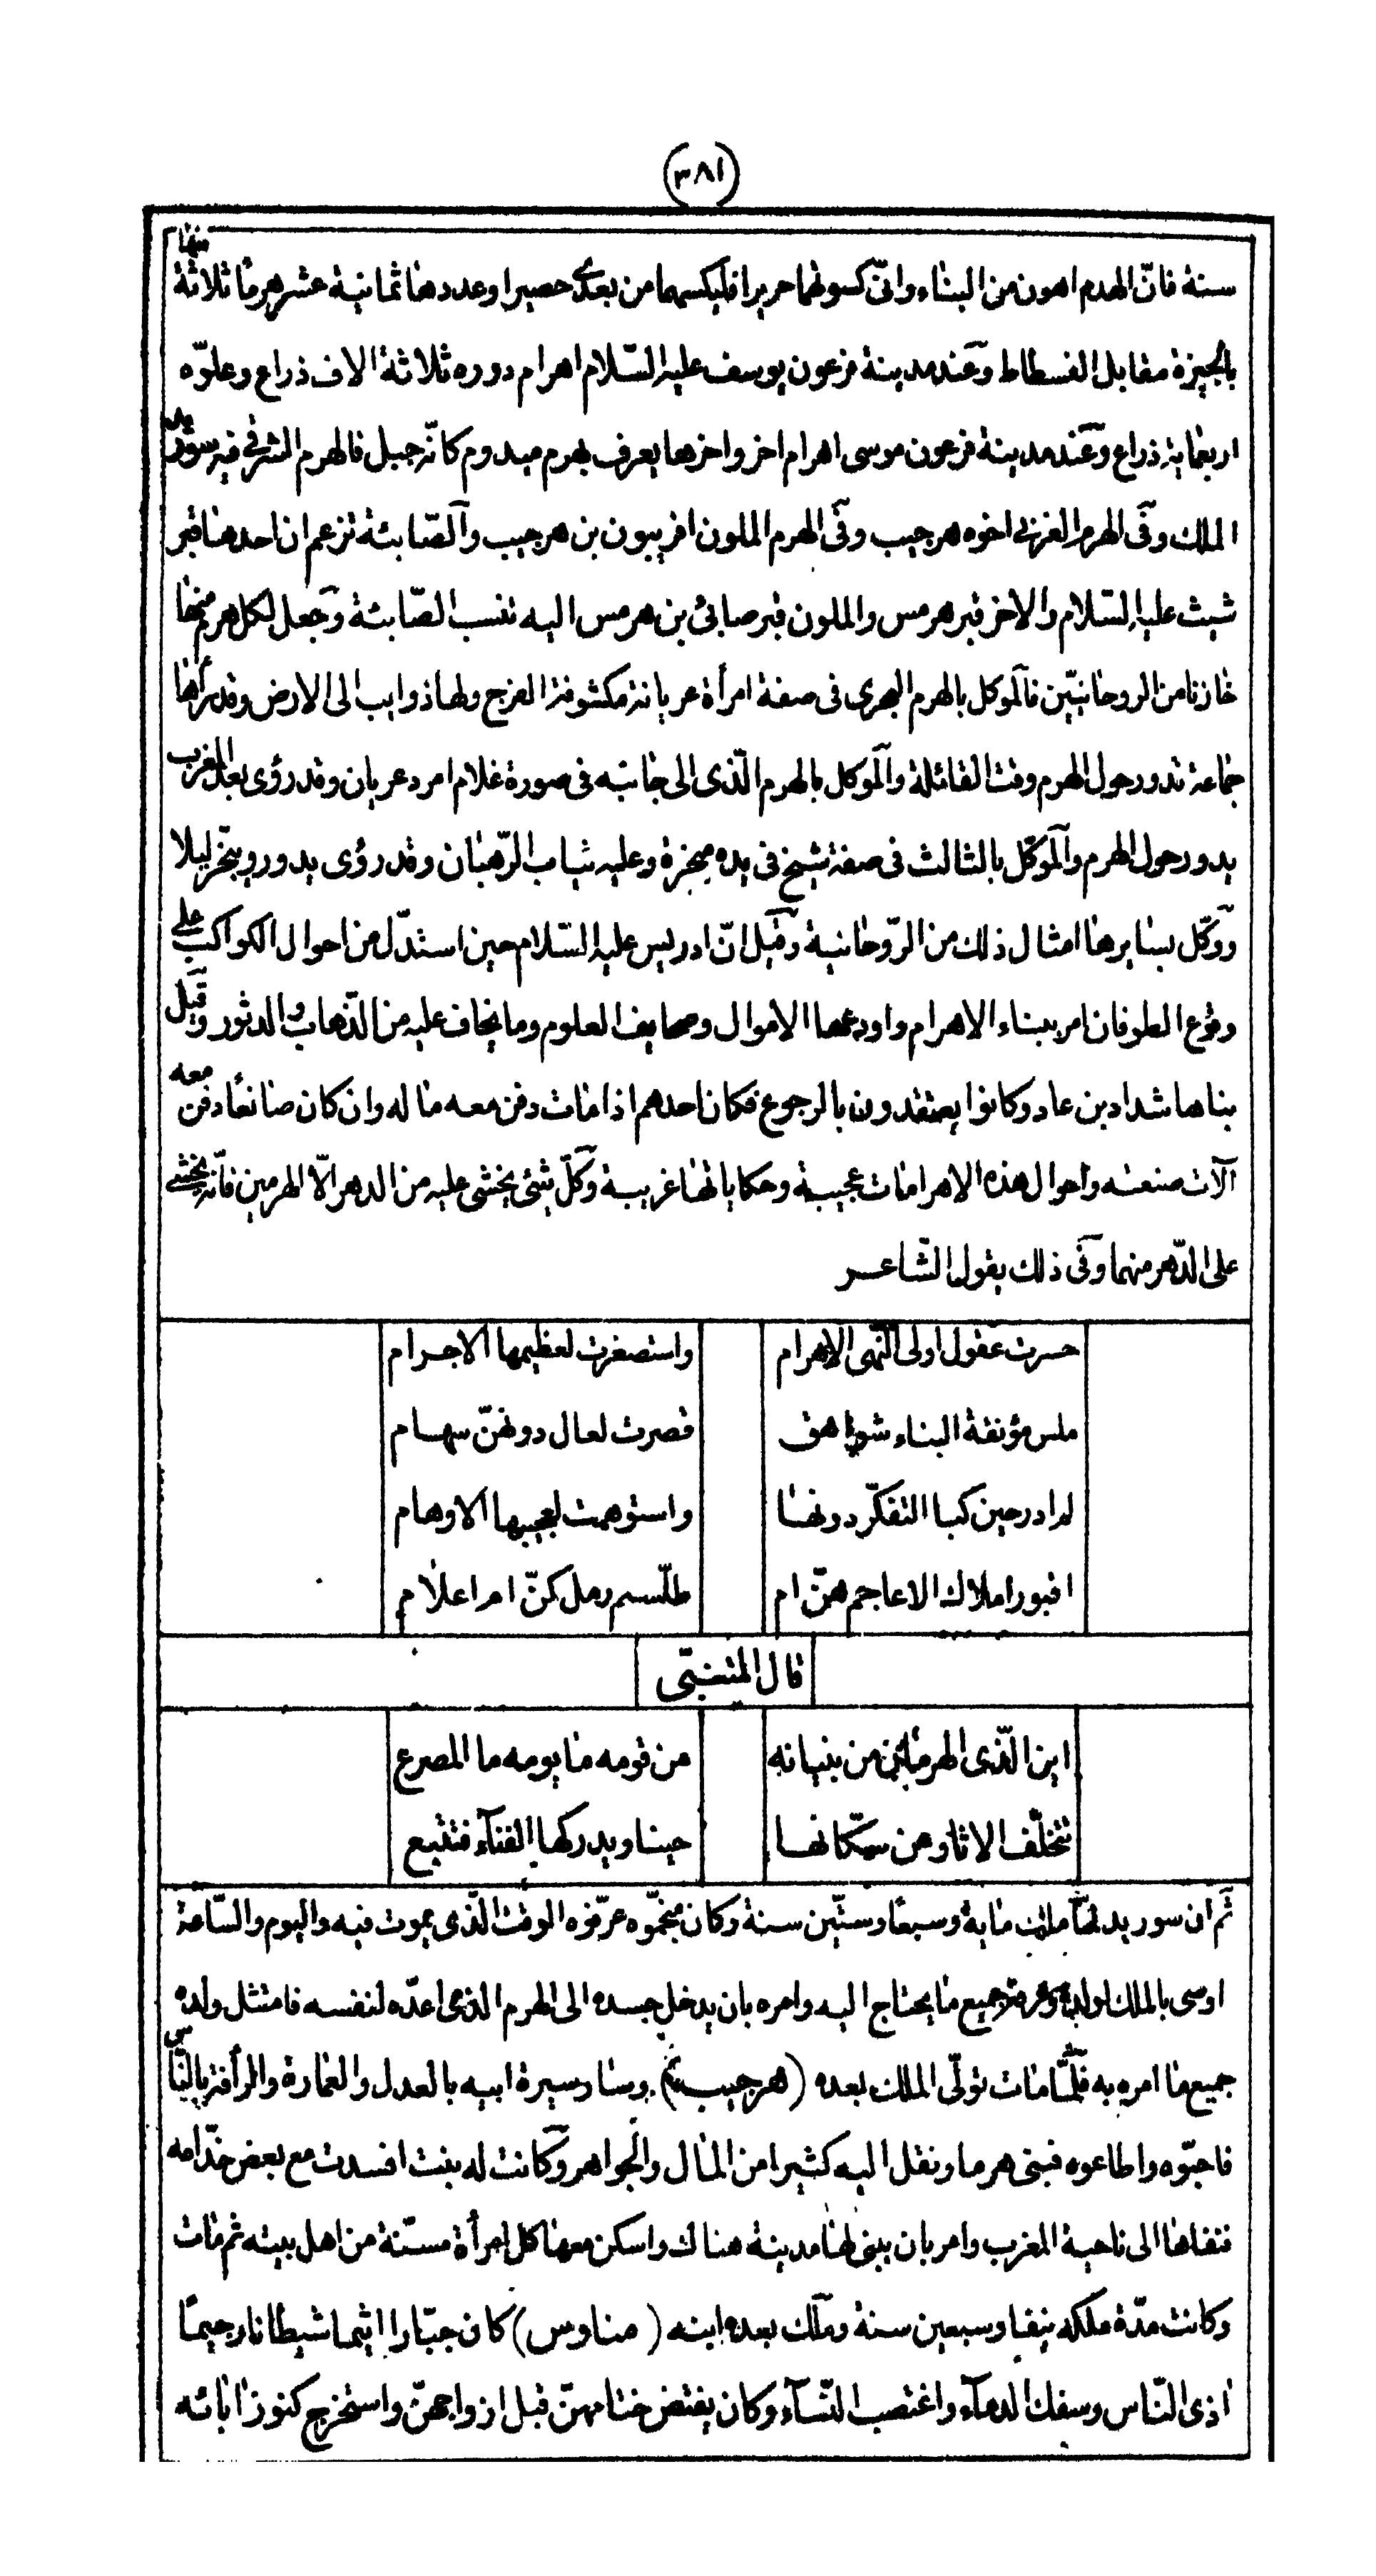 (٣٨١)
سنة فانّ الهدم اهون من البناء وانّى كسوتهما حريرا فليكسهما من بعدى حصيرا وعددها ثمانية عشر هرمًا ثلاثة منها
بالجيزة مقابل الفسطاط وعند مدينة فرعون يوسف عليه السّلام اهرام دوره ثلاثة الاف ذراع وعلوّه
اربعمائة ذراع وعند مدينة فرعون موسى اهرام اخر واخرها يعرف بهرم ميدوم كانّه جبل فالهرم الشرقى فيه سوريد
الملك وفى الهرم الغربى اخوه هرجيب وفى الهرم الملون افريبون بن هرجيب والصّابئة تزعم ان احدهنا قبر
شيث عليه السّلام والاخر قبر هرمس والملون قبر صابئ بن هرمس اليه تنسب الصّابئة وجعل لكل هرم منها
خازنا من الروحانيّين فالموكل بالهرم البحرى فى صفة امرأة عريانة مكشوفة الفرج ولها ذوايب الى الارض وقد رأها
جماعة تدور حول الهرم وقت القائلة والموكل بالهرم الّذى الى جانبه فى صورة غلام امرد عريان وقد رؤى بعد المغرب
يدور حول الهرم والموكّل بالثالث فى صفة شيخ فى يده مبخرة وعليه ثياب الرّهبان وقد رؤى يدور ويبخّر ليلا
ووكّل بسايرها امثال ذلك من الرّوحانية وقيل انّ ادريس عليه السّلام حين استدّل من احوال الكواكب على
وقوع الطوفان امر ببناء الاهرام واودعها الاموال وصحايف العلوم وما يخاف عليه من الذّهاب والدثور وقيل
بناها شداد بن عاد وكانوا يعتقدون بالرجوع فكان احدهم اذا مات دفن معه ماله وان كان صانعًا دفن معه
آلات صنعته واحوال هذه الاهرامات عجيبة وحكاياتها غريبة وكلّ شئ يخشى عليه من الدهر الّا الهرمين فانّه يخشى
على الدّهر منهما وفى ذلك يقول الشّاعر
حسرت عقول اولى النّهى الاهرام واستصغرت لعظيمها الاجرام
ملس مؤنقة البناء شواهق قصرت لعال دونهنّ سهام
لم ادر حين كبا التفكّر دونها واستوهمت لعجيبها الاوهام
اقبور املاك الاعاجم هنّ ام طلّسم رمل كنّ ام اعلام
قال المتنبّى
اين الّذى الهرمان من بنيانه من قومه ما يومه ما المصرع
تتخلّف الاثار عن سكّانها حينا ويدركها الفنآء فتتبع
ثم ان سوريد لمّا ملك مايه وسبعًا وستّين سنة وكان منجّموه عرّفوه الوقت الّذى يموت فيه واليوم والسّاعة
اوصى بالملك لولده وعرفه جميع ما يحتاج اليه وامره بان يدخل جسده الى الهرم الذى اعدّه لنفسه فامتثل ولده
جميع ما امره به فلمّا مات تولّى الملك بعده (هرجيب) وسار سيرة ابيه بالعدل والعمارة والرأفة بالنّاس
فاحبّوه واطاعوه فبنى هرما ونقل اليه كثيرا من المال والجواهر وكانت له بنت افسدت مع بعض خدّامه
فنفاها الى ناحية المغرب وامر بان يبنى لها مدينة هناك واسكن معها كل امرأة مسنّة من اهل بيته ثم مات
وكانت مدّة ملكه نيفا وسبعين سنة وملك بعده ابنه (مناوس) كان جبّارا اثيما شيطانا رجيمًا
اذى النّاس وسفك الدمآء واغتصب النّسآء وكان يفتض ختامهنّ قبل ازواجهنّ واستخرج كنوز ابائه